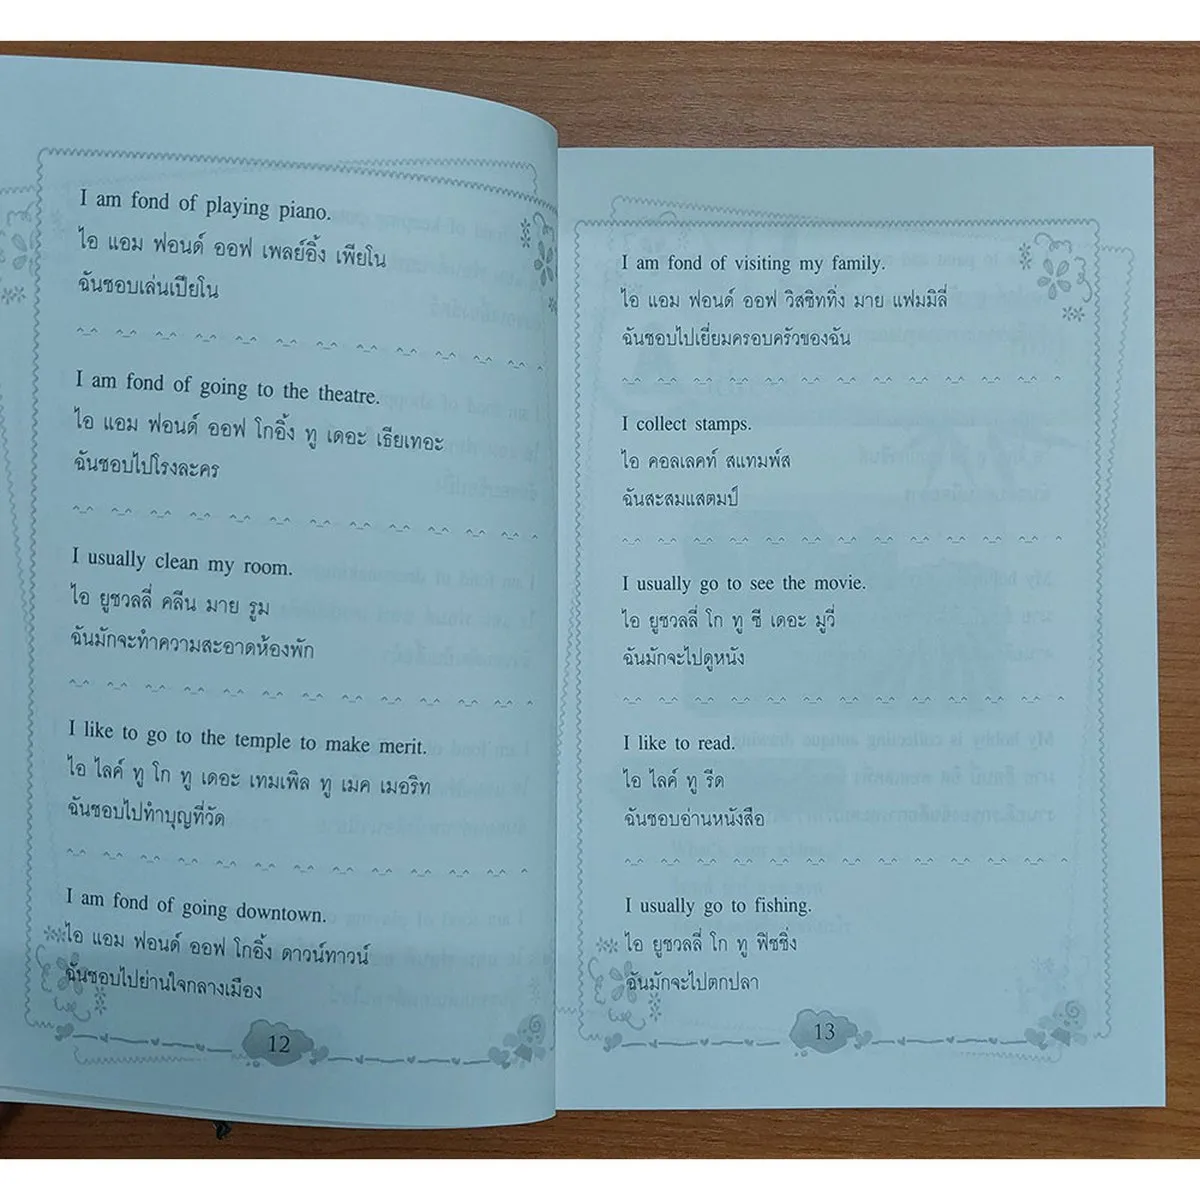 I am fond of playing piano.
ไอ แอม ฟอนด์ ออฟ เพลย์อิ้ง เพียโน
ฉันชอบเล่นเปียโน
I am fond of going to the theatre.
ไอ แอม ฟอนด์ ออฟ โกอิ้ง ทู เดอะ เธียเทอะ
ฉันชอบไปโรงละคร
I usually clean my room.
ไอ ยูชวลลี่ คลีน มาย รูม
ฉันมักจะทำความสะอาดห้องพัก
I like to go to the temple to make merit.
ไอ ไลค์ ทู โก ทู เดอะ เทมเพิล ทู เมค เมอริท
ฉันชอบไปทำบุญที่วัด
I am fond of going downtown.
ไอ แอม ฟอนด์ ออฟ โกอิ้ง ดาวน์ทาวน์
ฉันชอบไปย่านใจกลางเมือง
12
I am fond of visiting my family.
ไอ แอม ฟอนด์ ออฟ วิสซิททิ่ง มาย แฟมมิลี่
ฉันชอบไปเยี่ยมครอบครัวของฉัน
I collect stamps.
ไอ คอลเลคท์ สแทมพ์ส
ฉันสะสมแสตมป์
I usually go to see the movie.
ไอ ยูชวลลี่ โก ทู ซี เดอะ มูวี่
ฉันมักจะไปดูหนัง
I like to read.
ไอ ไลค์ ทู รีด
ฉันชอบอ่านหนังสือ
I usually go to fishing.
ไอ ยูชวลลี่ โก ทู ฟิชชิ่ง
ฉันมักจะไปตกปลา
13